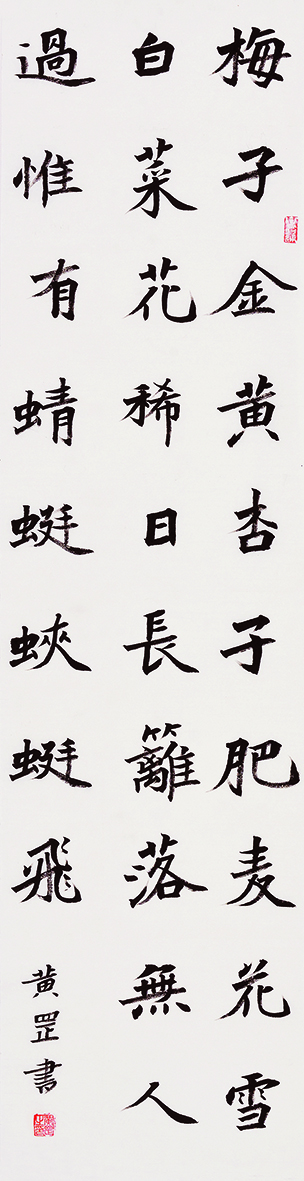 梅子金黄杏子肥麦花雪
白菜花稀日長籬落無人
過惟有蜻蜓蛺蜓飛
黄罡書